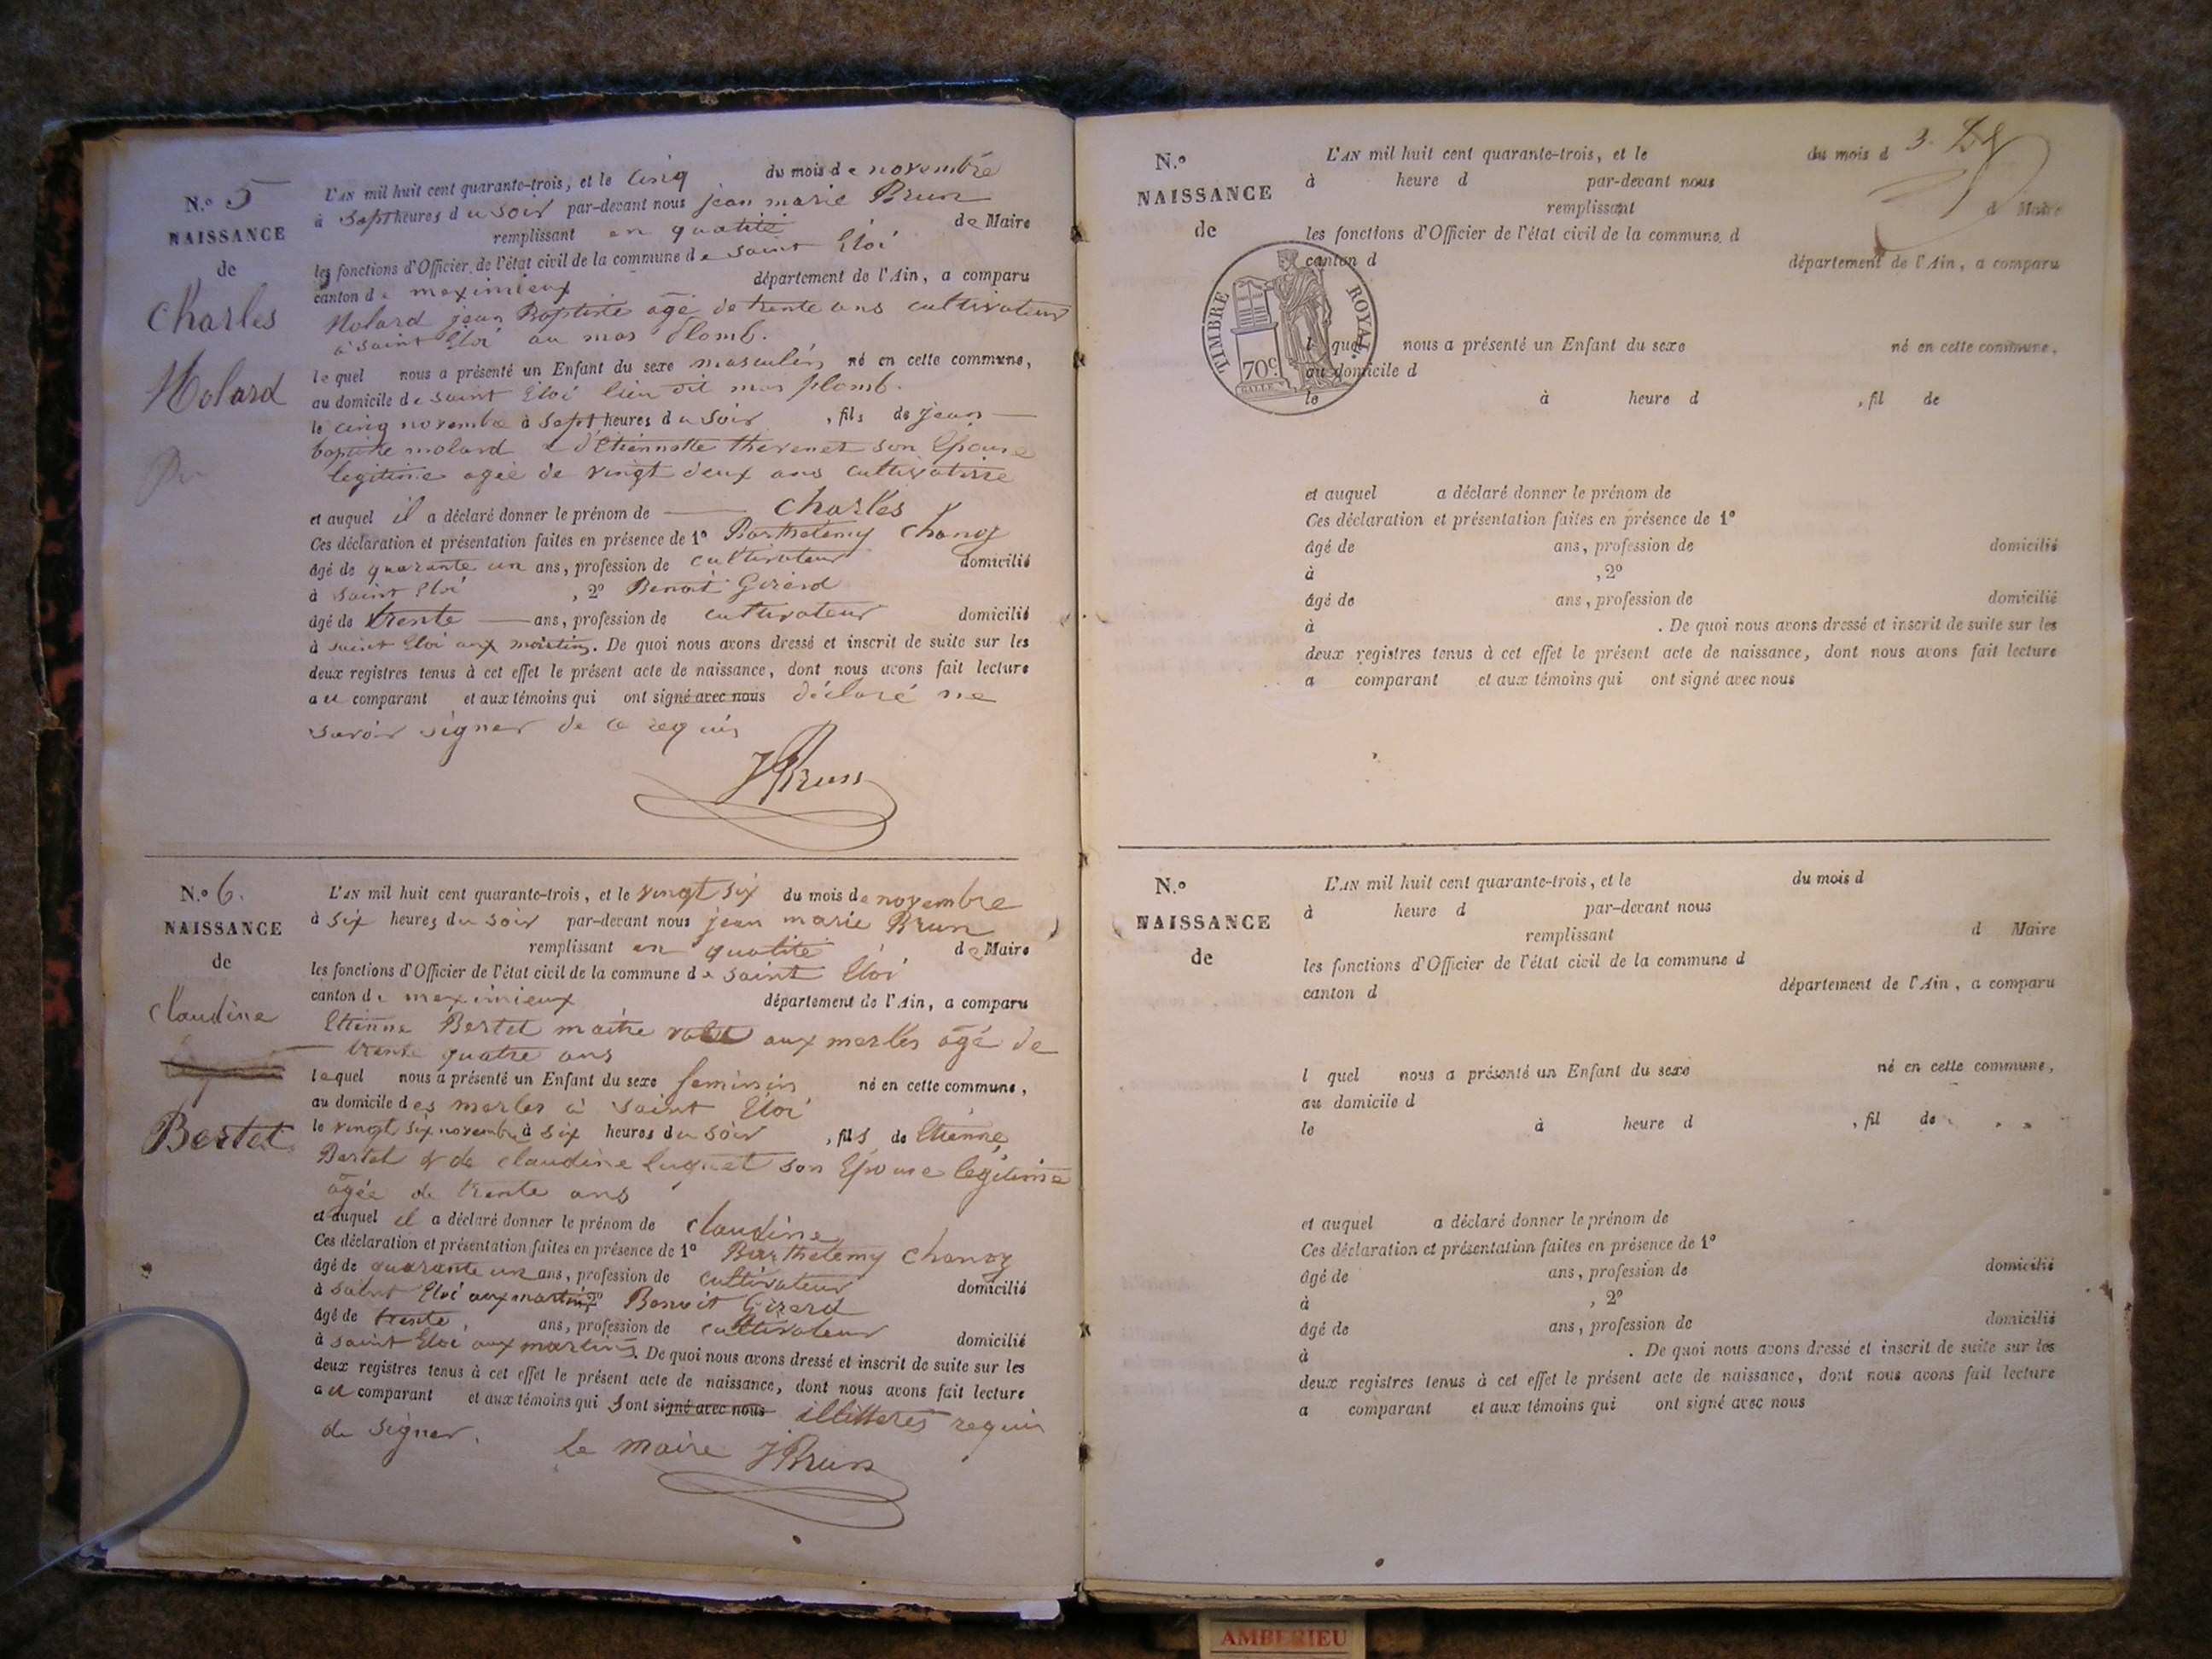 N.o 5
NAISSANCE
de
Charles
Molard
L'AN mil huit cent quarante-trois, et le cinq du mois de novembre
à Sept heures du Soir par-devant nous jean marie Brun
remplissant en qualité de Maire
les fonctions d'Officier de l'état civil de la commune de saint Eloi
canton de meximieux département de l'Ain, a comparu
Molard jean Baptiste agé de trente ans cultivateur
a saint Eloi au mas plomb.
lequel nous a présenté un Enfant du sexe masculin né en cette commune,
au domicile de saint Eloi lieu dit mas plomb.
le cinq novembre à Sept heures du Soir, fils de jean
baptiste molard & d'Etiennette thevenet son Epouse
legitime agée de vingt deux ans cultivatrise
et auquel il a déclaré donner le prénom de Charles
Ces déclaration et présentation faites en présence de 1o Barthelemy Chanoz
âgé de quarante un ans, profession de cultivateur domicilié
à saint Eloi, 2o Benoit Girard
âgé de trente ans, profession de cultivateur domicilié
à saint Eloi aux martins. De quoi nous avons dressé et inscrit de suite sur les
deux registres tenus à cet effet le présent acte de naissance, dont nous avons fait lecture
au comparant et aux témoins qui ont signé avec nous déclaré ne
savoir signer de ce requis
JBrun
N.o 6.
NAISSANCE
de
Claudine
Bertet
L'AN mil huit cent quarante-trois, et le vingt six du mois de novembre
à six heures du soir par-devant nous jean marie Brun
remplissant en qualité de Maire
les fonctions d'Officier de l'état civil de la commune de saint Eloi
canton de meximieux département de l'Ain, a comparu
Etienne Bertet maitre valet aux merles agé de
trente quatre ans
lequel nous a présenté un Enfant du sexe feminin né en cette commune,
au domicile des merles à saint Eloi
le vingt six novembre à six heures du soir, fils de Etienne
Bertet & de claudine luquet son Epouse legitime
agée de trente ans
et auquel il a déclaré donner le prénom de claudine
Ces déclaration et présentation faites en présence de 1o Barthelemy Chanoz
âgé de quarante un ans, profession de cultivateur domicilié
à saint Eloi aux martins 2o Benoit Girard
âgé de trente, ans, profession de cultivateur domicilié
à saint Eloi aux martins. De quoi nous avons dressé et inscrit de suite sur les
deux registres tenus à cet effet le présent acte de naissance, dont nous avons fait lecture
au comparant et aux témoins qui sont signé avec nous illitterés requis
de signer.
Le maire JBrun
3.
N.o
NAISSANCE
de
TIMBRE ROYAL.
70c.
L'AN mil huit cent quarante-trois, et le du mois d
à heure d par-devant nous
remplissant d Maire
les fonctions d'Officier de l'état civil de la commune d
canton d département de l'Ain, a comparu
l quel nous a présenté un Enfant du sexe né en cette commune,
au domicile d
le à heure d , fil de
et auquel a déclaré donner le prénom de
Ces déclaration et présentation faites en présence de 1o
âgé de ans, profession de domicilié
à , 2o
âgé de ans, profession de domicilié
à . De quoi nous avons dressé et inscrit de suite sur les
deux registres tenus à cet effet le présent acte de naissance, dont nous avons fait lecture
a comparant et aux témoins qui ont signé avec nous
N.o
NAISSANCE
de
L'AN mil huit cent quarante-trois, et le du mois d
à heure d par-devant nous
remplissant d Maire
les fonctions d'Officier de l'état civil de la commune d
canton d département de l'Ain, a comparu
l quel nous a présenté un Enfant du sexe né en cette commune,
au domicile d
le à heure d , fil de
et auquel a déclaré donner le prénom de
Ces déclaration et présentation faites en présence de 1o
âgé de ans, profession de domicilié
à , 2o
âgé de ans, profession de domicilié
à . De quoi nous avons dressé et inscrit de suite sur les
deux registres tenus à cet effet le présent acte de naissance, dont nous avons fait lecture
a comparant et aux témoins qui ont signé avec nous
AMBERIEU